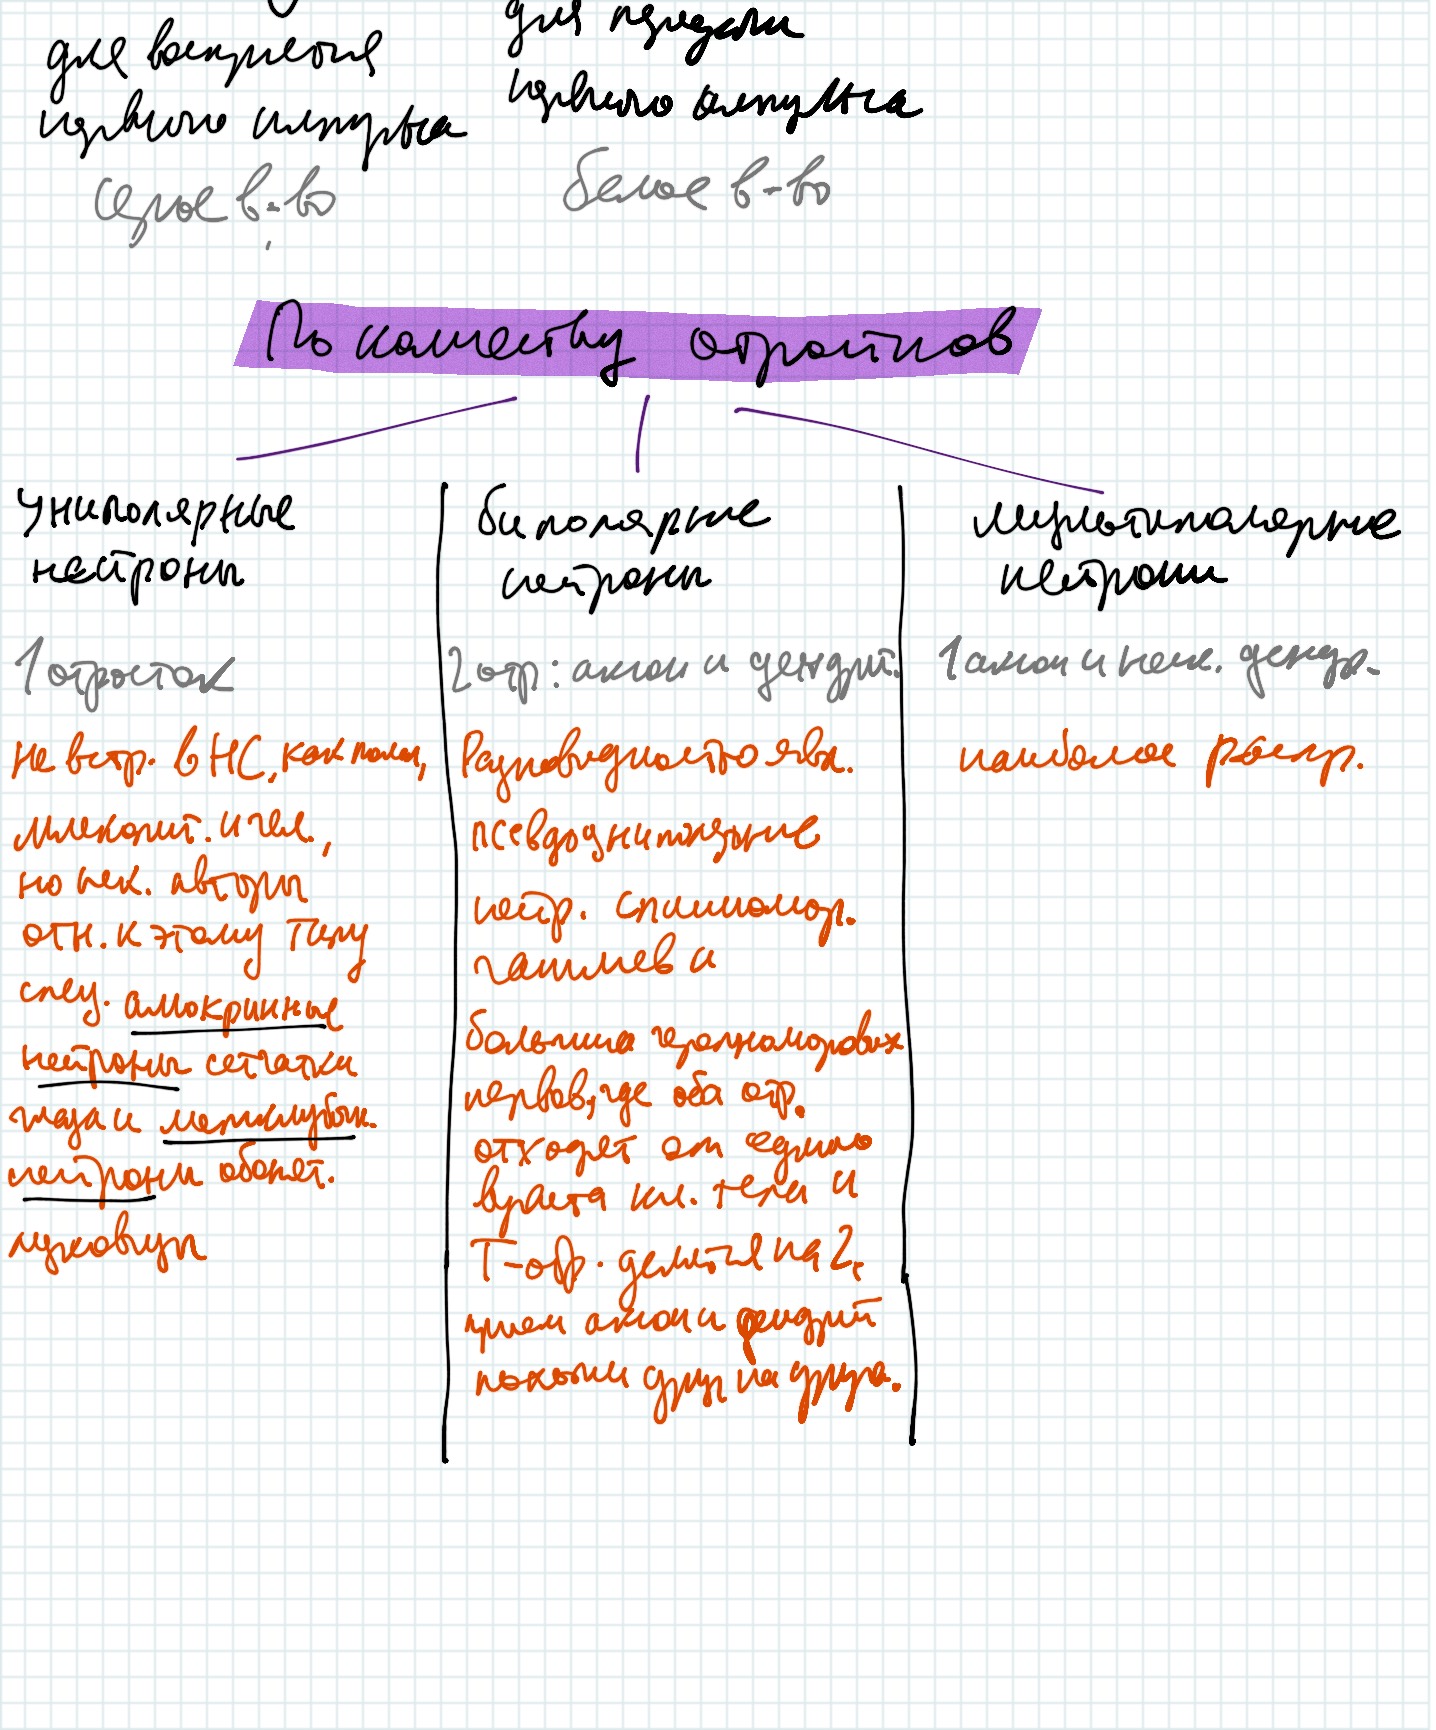 для восприятия
нервного импульса
серое в-во
для передачи
нервного импульса
белое в-во
По количеству отростков
униполярные
нейроны
1 отросток
не встр. в НС, как полаг,
млекопит. и чел.,
но нек. авторы
отн. к этому типу
спец. амокринные
нейроны сетчатки
глаза и межклубочк.
нейроны обонят.
луковицы
биполярные
нейроны
2 отр: аксон и дендрит.
Разновидностью явл.
псевдоуниполярные
нейр. спинномозг.
ганглиев и
большинства черепномозговых
нервов, где оба отр.
отходят от единого
выроста кл. тела и
Т-обр. делятся на 2,
причем аксон и дендрит
похожи друг на друга.
мультиполярные
нейроны
1 аксон и неск. дендр.
наиболее распр.